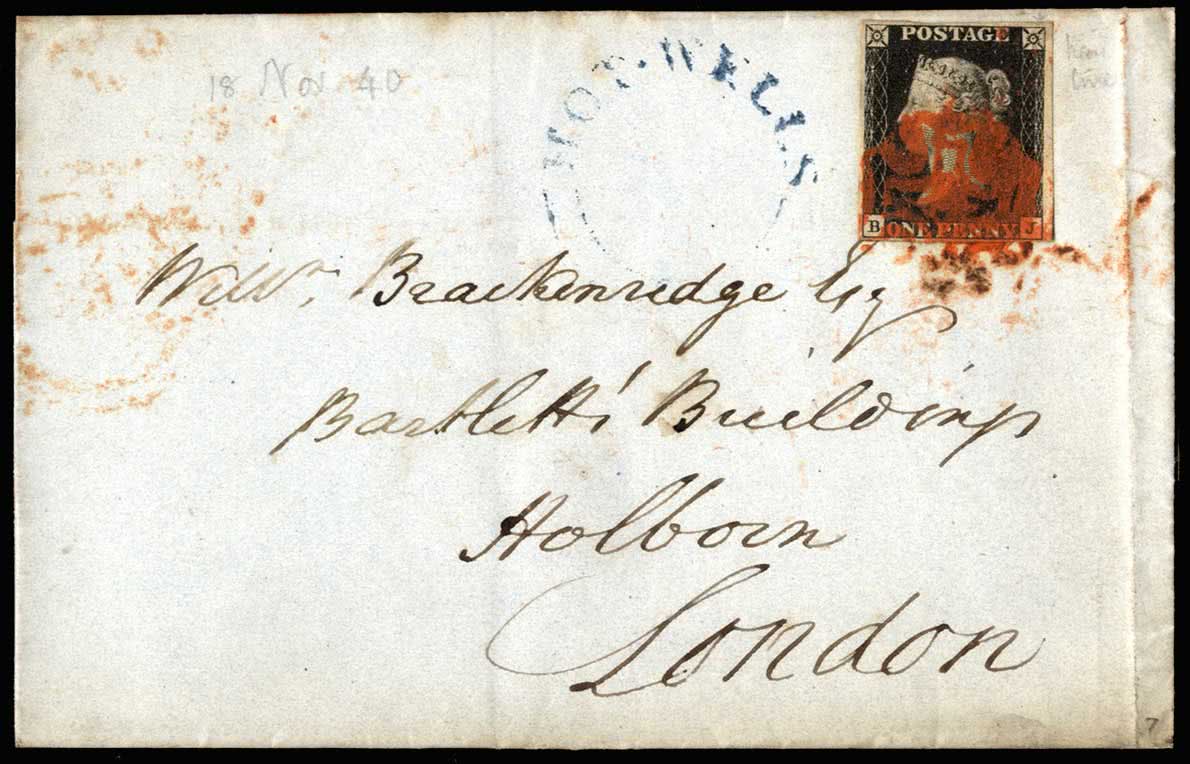 18 Nov 40
HOT-WELLS
POSTAGE
B ONE PENNY J
Willm. Brackenridge Esq
Bartlett's Buildings
Holborn
London
7